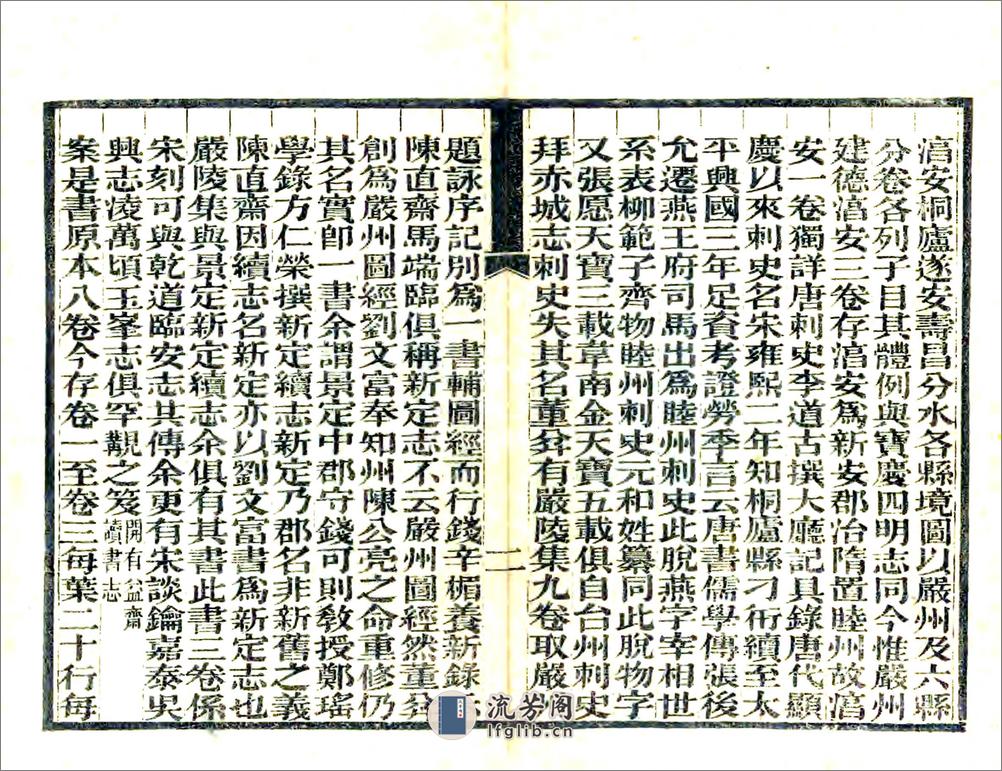 淳安桐廬遂安壽昌分水各縣境圖以嚴州及六縣
分卷各列子目其體例與寶慶四明志同今惟嚴州
建德淳安三卷存淳安爲新安郡治隋置睦州故淳
安一卷獨詳唐刺史李道古撰大廳記具錄唐代顯
慶以來刺史名宋雍熙二年知桐廬縣刁衎續至太
平興國三年足資考證勞季言云唐書儒學傳張後
允遷燕王府司馬出爲睦州刺史此脫燕字宰相世
系表柳範子齊物睦州刺史元和姓纂同此脫物字
又張愿天寶三載韋南金天寶五載俱自台州刺史
拜赤城志刺史失其名董弅有嚴陵集九卷取嚴
題詠序記別爲一書輔圖經而行錢辛楣養新錄
陳直齋馬端臨俱稱新定志不云嚴州圖經然董弅
創爲嚴州圖經劉文富奉知州陳公亮之命重修仍
其名實卽一書余謂景定中郡守錢可則敎授鄭瑤
學錄方仁榮撰新定續志新定乃郡名非新舊之義
陳直齋因續志名新定亦以劉文富書爲新定志也
嚴陵集與景定新定續志余俱有其書此書三卷係
宋刻可與乾道臨安志其傳余更有宋談鑰嘉泰吳
興志凌萬頃玉峯志俱罕覯之笈開有益齋讀書志
案是書原本八卷今存卷一至卷三每葉二十行每
二
流芳阁
lfglib.cn